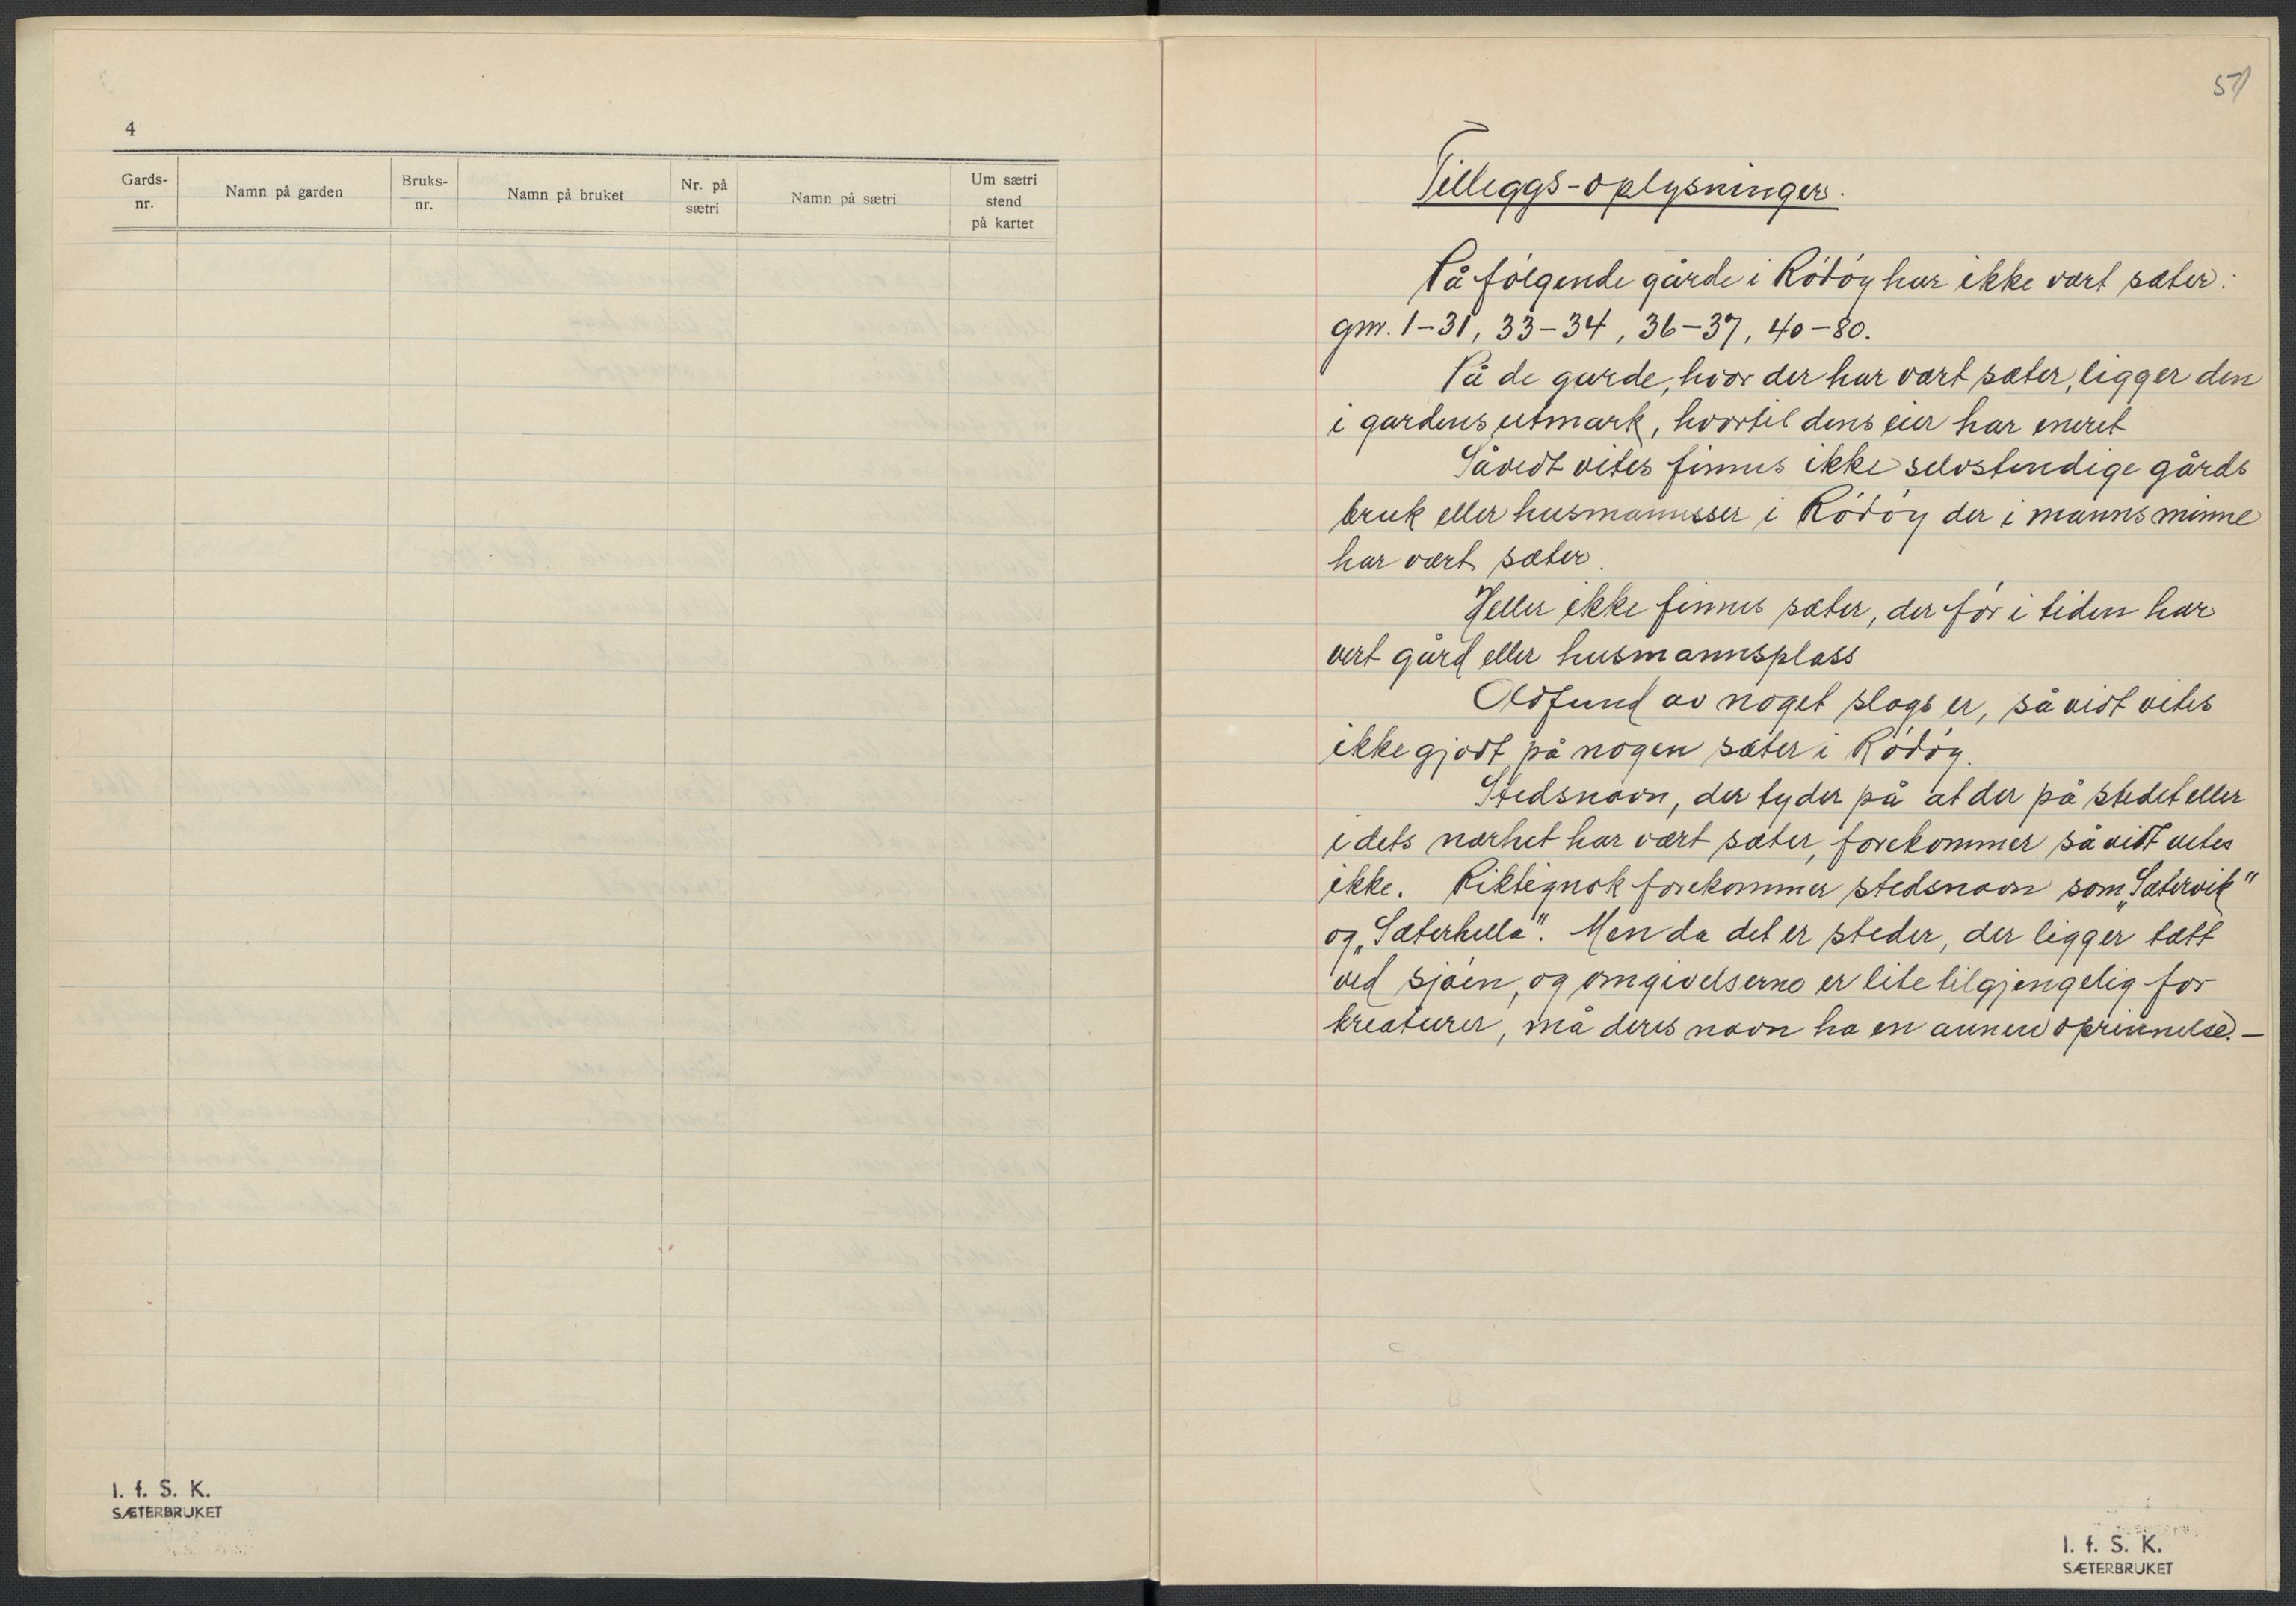 4
Gards-
nr.
Namn på garden
Bruks-
nr.
Namn på bruket
Nr. på
sætri
Namn på sætri
Um sætri
stend
på kartet
I. f. S. K.
SÆTERBRUKET
51
Tilleggs-oplysninger.
På følgende gårde i Rödöy har ikke vært sæter:
gnr. 1-31, 33-34, 36-37, 40-80.
På de garde, hvor der har vært sæter, ligger den
i gardens utmark, hvortil dens eier har eneret
Såvidt vites finnes ikke selvstendige gårds
bruk eller i Rödöy der i manns minne
har vært sæter.
Heller ikke finnes sæter, der før i tiden har
vert gård eller husmannsplass
Oldfund av noget slags er, så vidt vites
ikke gjort på nogen sæter i Rödöy.
Stedsnavn, der tyder på at der på stedet eller
i dets nærhet har vært sæter, forekommer så vidt vites
ikke. Riktignok forekommer stedsnavn som „Sætervik"
og „Sæterhella". Men da det er steder, der ligger tætt
ved sjøen, og omgivelserne er lite tilgjengelig for
kreaturer, må deres navn ha en annen oprinnelse. —
I. f. S. K.
SÆTERBRUKET